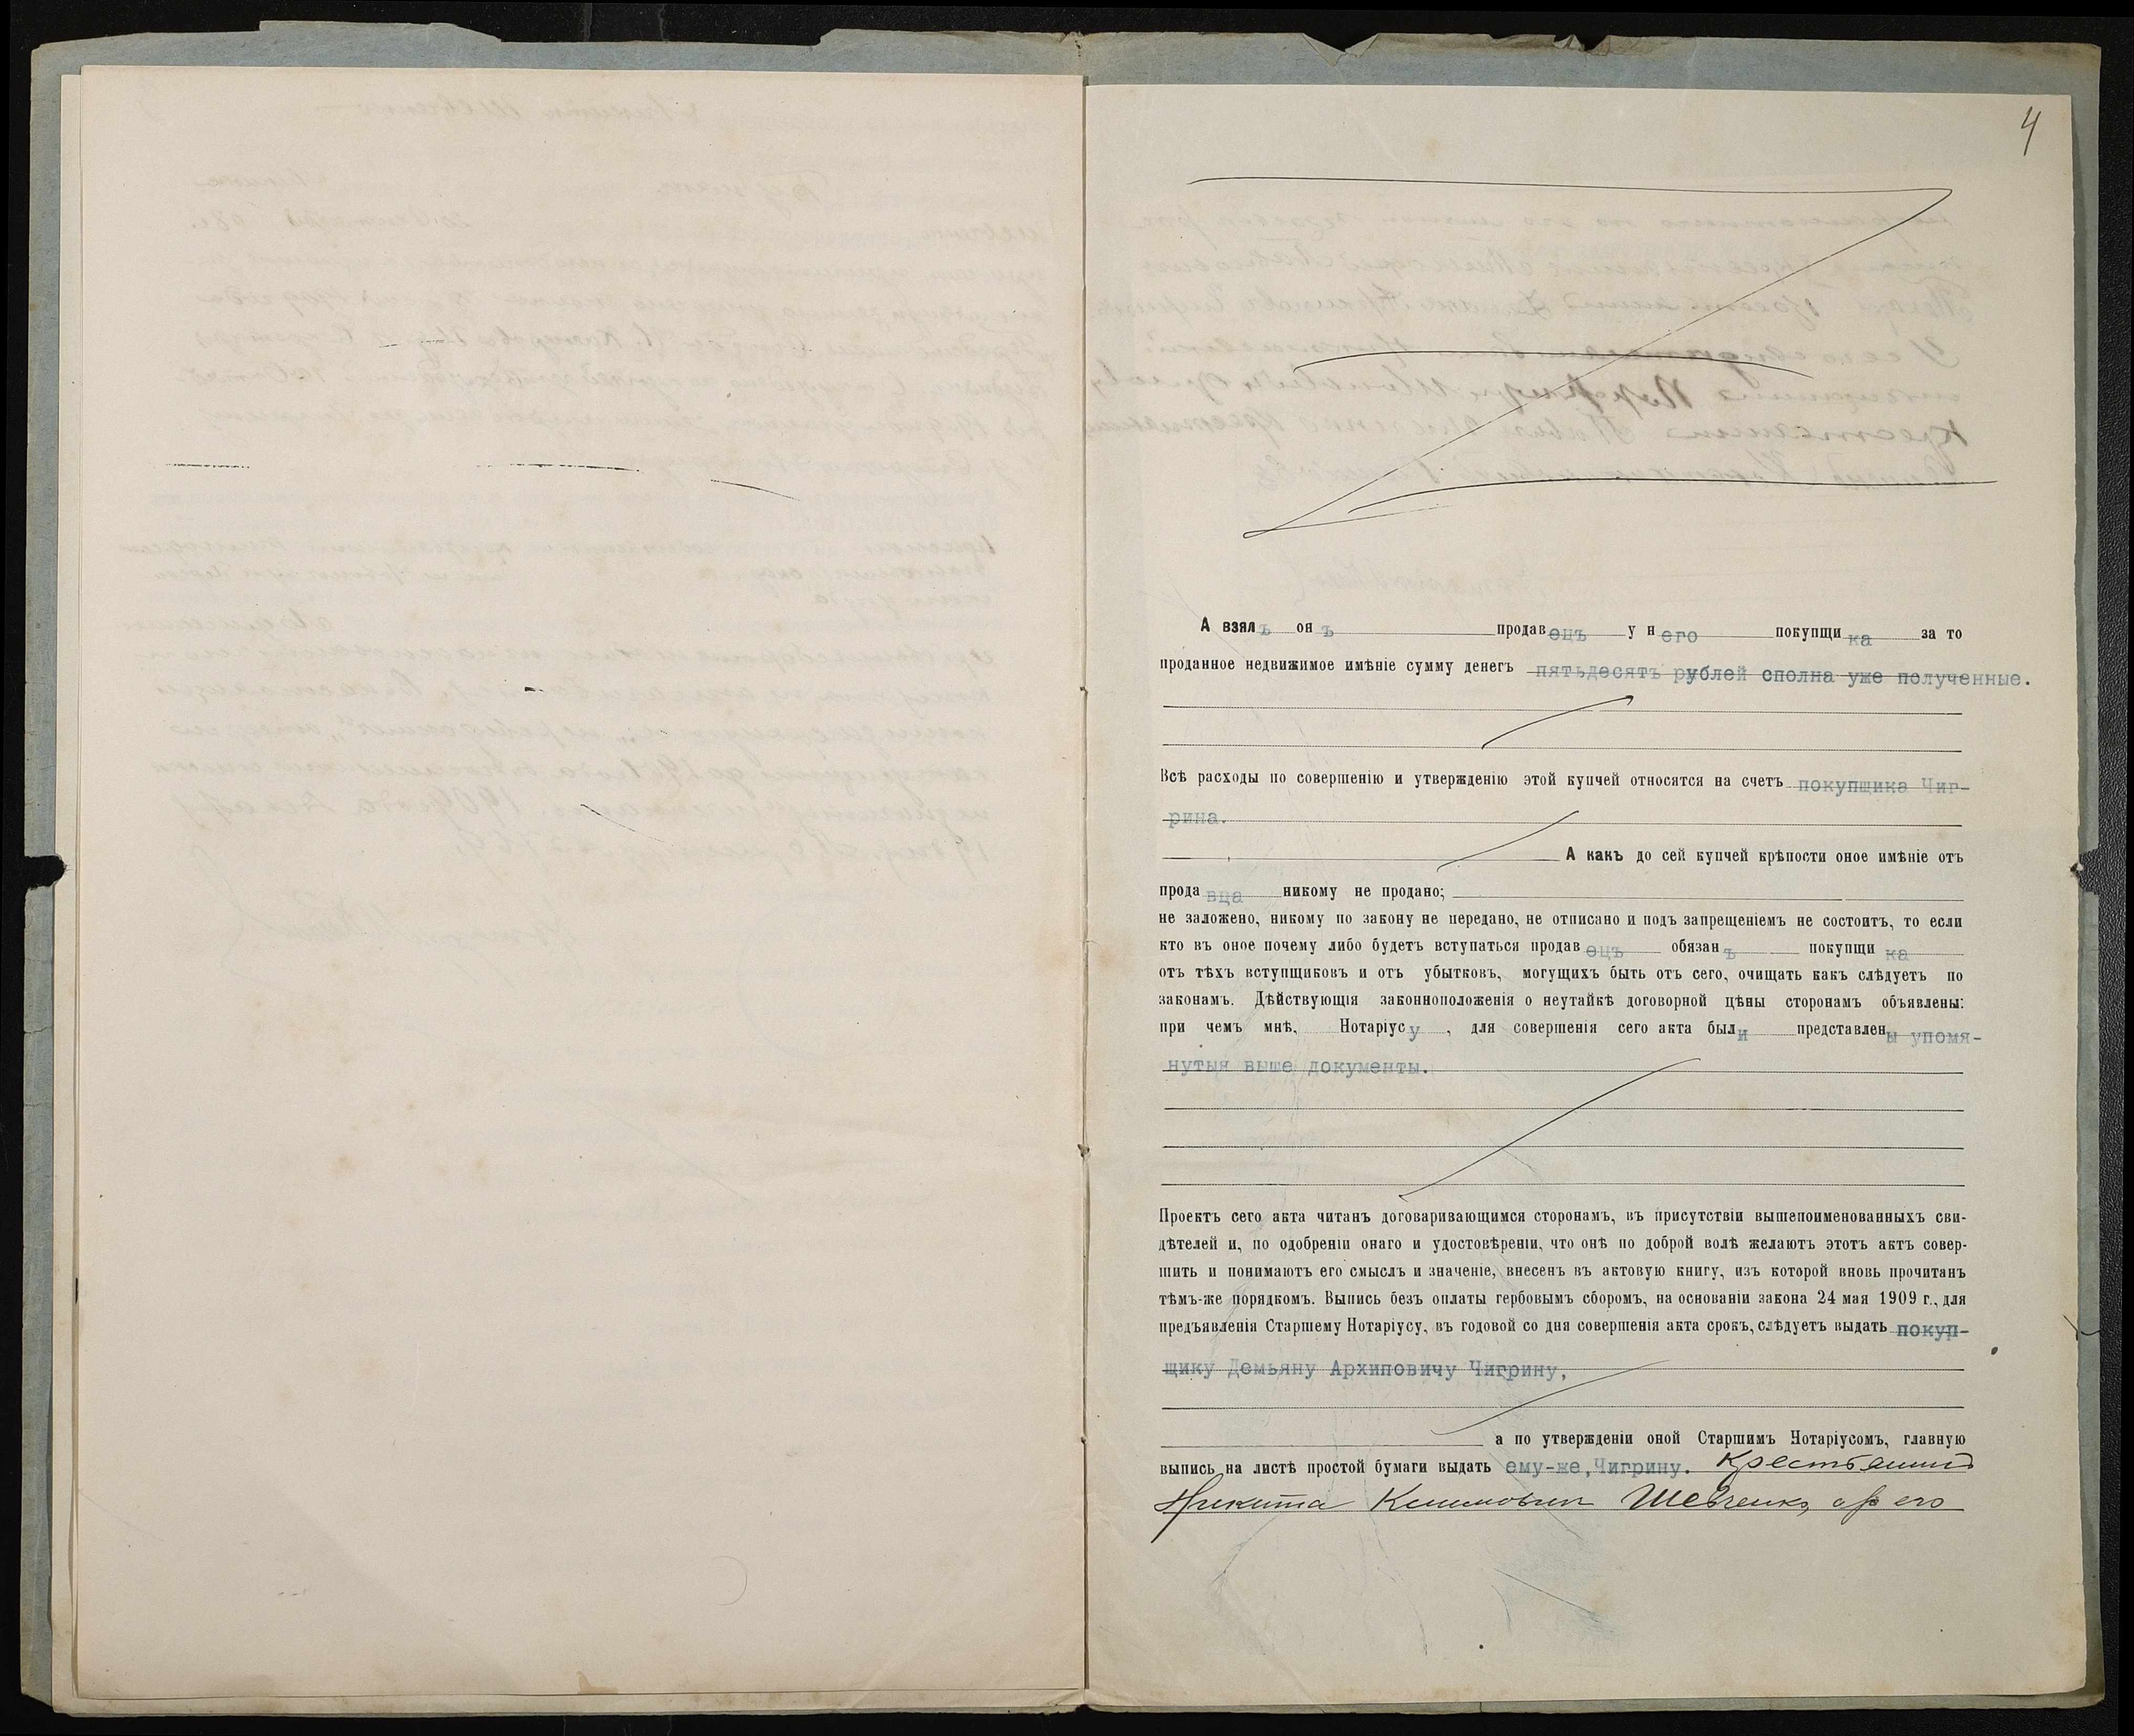 4
А взялъ онъ продавецъ у него покупщика за то
проданное недвижимое имѣніе сумму денегъ пятьдесятъ рублей сполна уже полученные.
Всѣ расходы по совершенію и утвержденію этой купчей относятся на счетъ покупщика Чиг-
рина.
А какъ до сей купчей крѣпости оное имѣніе отъ
продавца никому не продано;
не заложено, никому по закону не передано, не отписано и подъ запрещеніемъ не состоитъ, то если
кто въ оное почему либо будетъ вступаться продавецъ обязанъ покупщика
отъ тѣхъ вступщиковъ и отъ убытковъ, могущихъ быть отъ сего, очищать какъ слѣдуетъ по
законамъ. Дѣйствующія законноположенія о неутайкѣ договорной цѣны сторонамъ объявлены:
при чемъ мнѣ, Нотаріусу, для совершенія сего акта были представлены упомя-
нутыя выше документы.
Проектъ сего акта читанъ договаривающимся сторонамъ, въ присутствіи вышепоименованныхъ сви-
дѣтелей и, по одобреніи онаго и удостовѣреніи, что онѣ по доброй волѣ желаютъ этотъ актъ совер-
шить и понимаютъ его смыслъ и значеніе, внесенъ въ актовую книгу, изъ которой вновь прочитанъ
тѣмъ-же порядкомъ. Выпись безъ оплаты гербовымъ сборомъ, на основаніи закона 24 мая 1909 г., для
предъявленія Старшему Нотаріусу, въ годовой со дня совершенія акта срокъ, слѣдуетъ выдать покуп-
щику Демьяну Архиповичу Чигрину,
а по утвержденіи оной Старшимъ Нотаріусомъ, главную
выпись на листѣ простой бумаги выдать ему-же, Чигрину. Крестьянинъ
Никита Климовичъ Шевченко, а за его